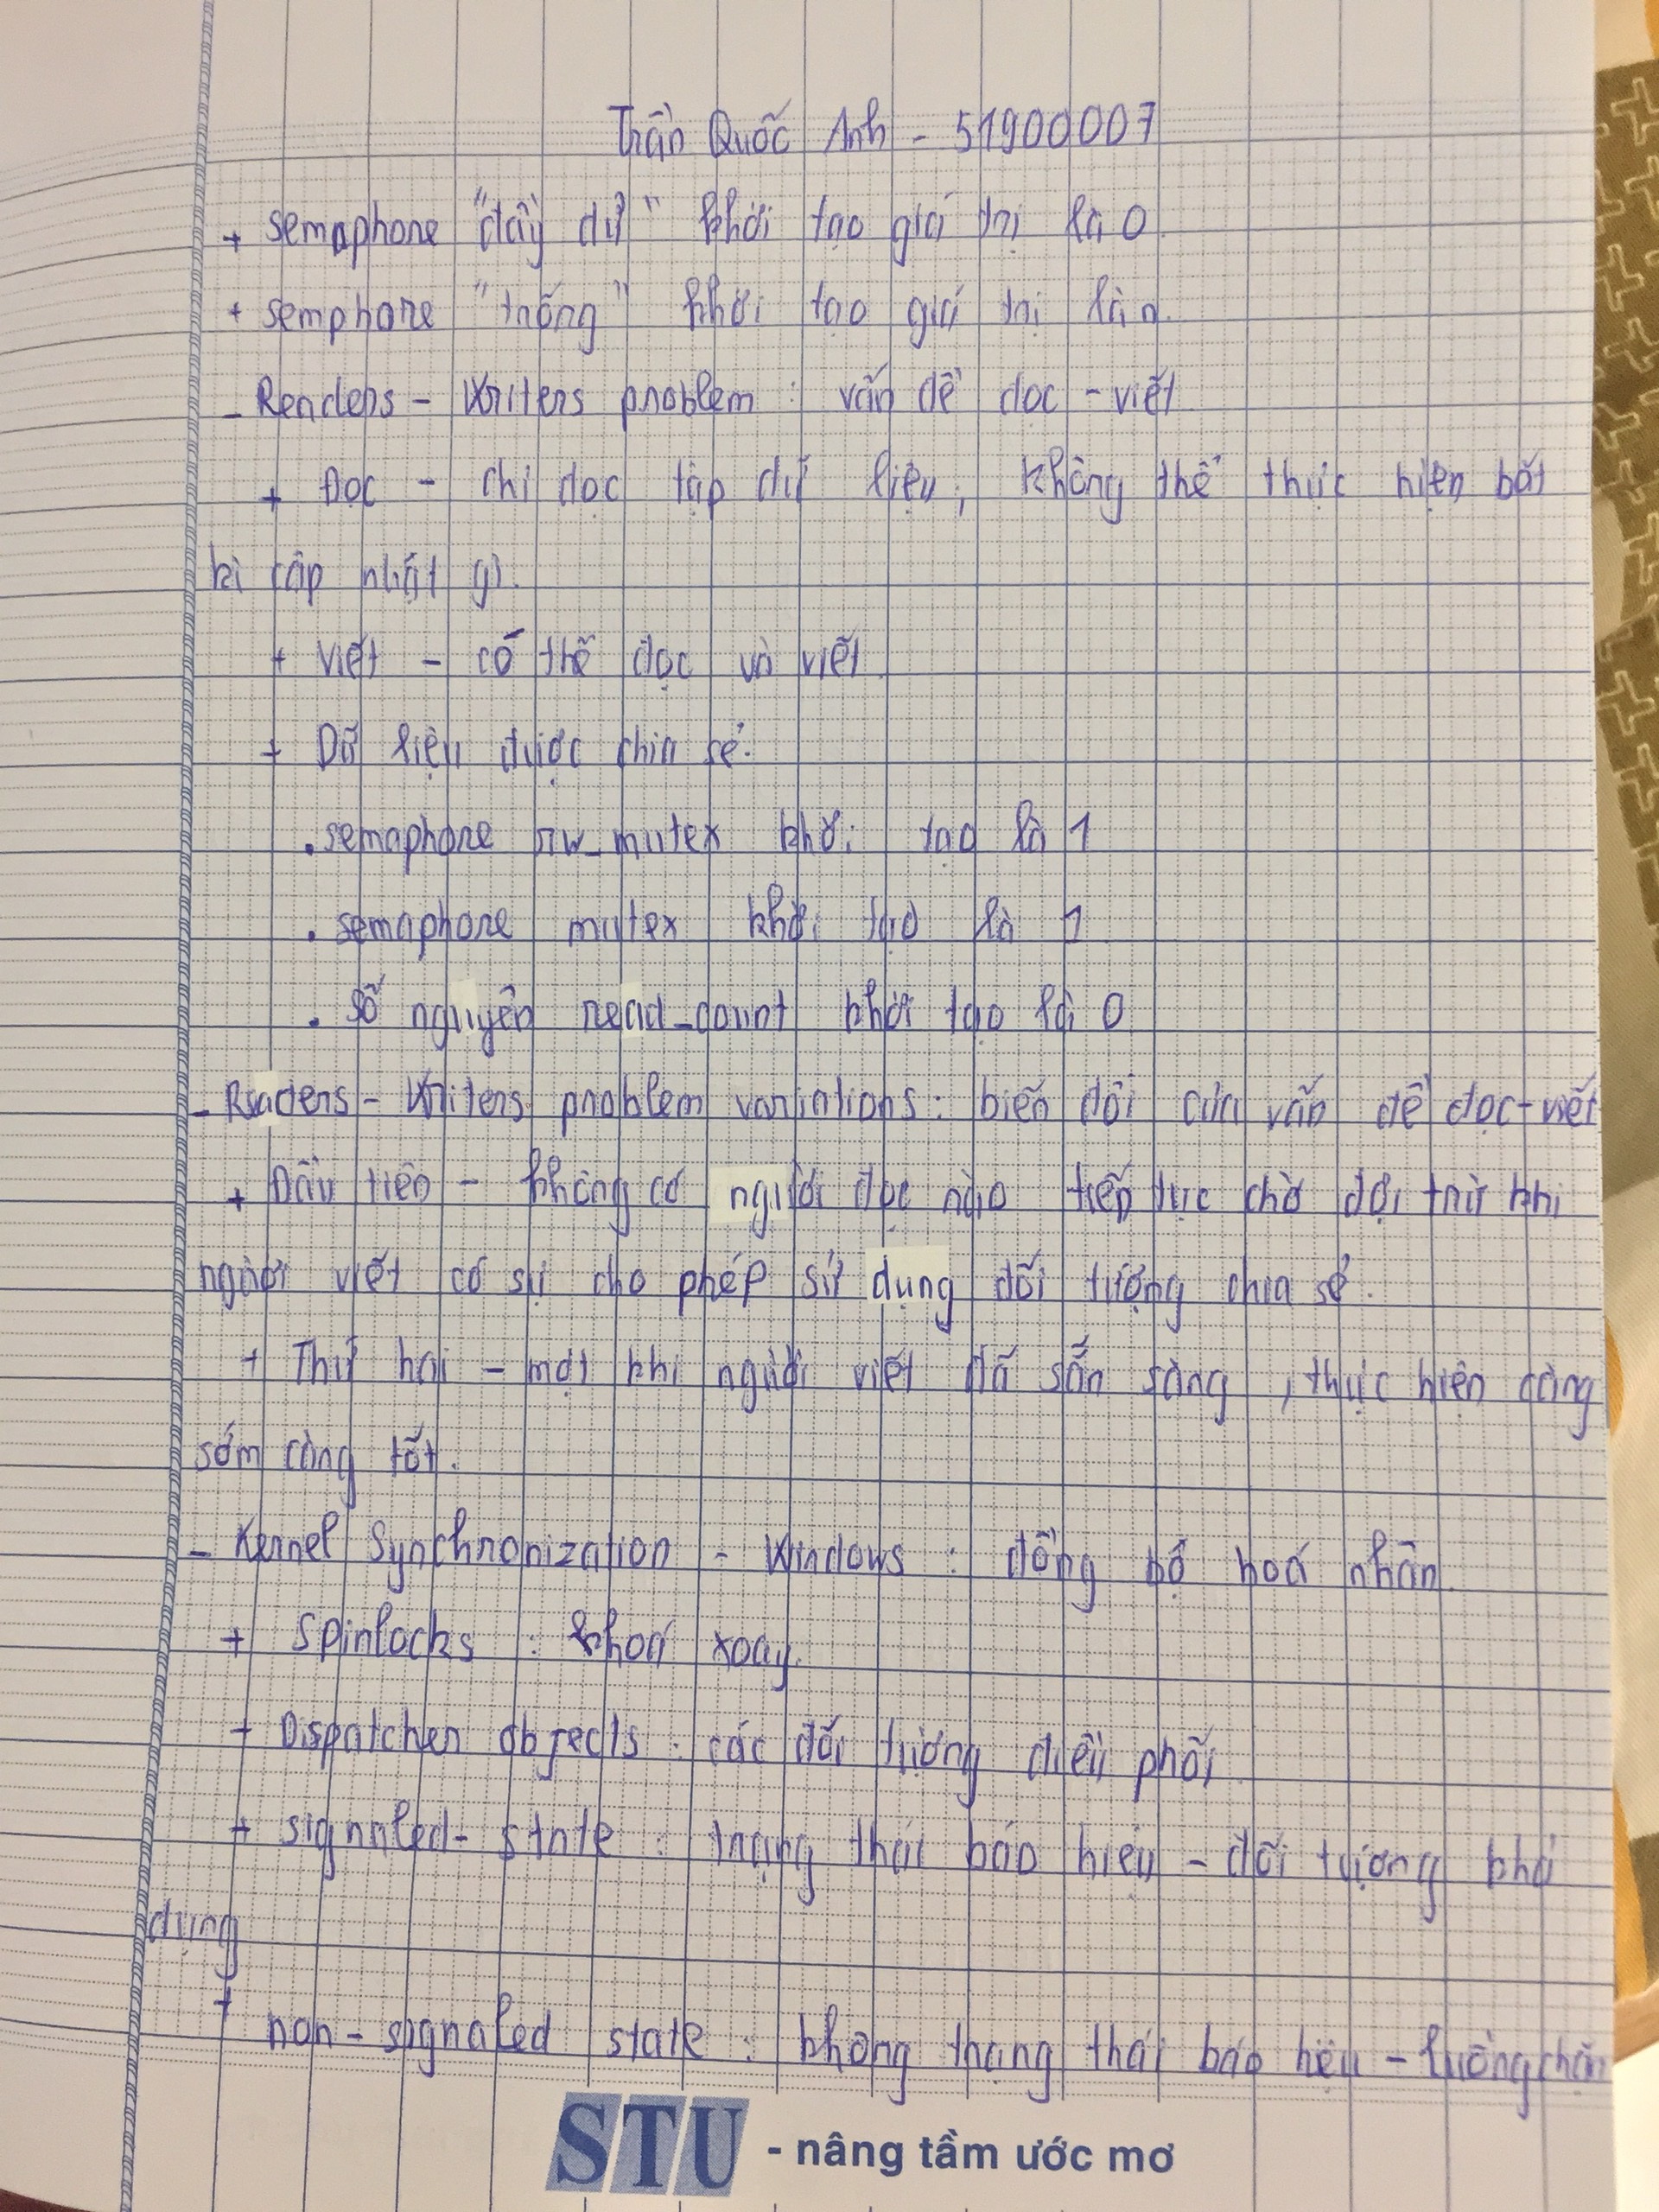 Trần Quốc Anh - 51900007
+ semaphore "đầy đủ" khởi tạo giá trị là 0.
+ semphore "trống" khởi tạo giá trị là n.
- Readers - Writers problem : vấn đề đọc - viết
+ Đọc - chỉ đọc tập dữ liệu, không thể thực hiện bất
kì cập nhật gì.
+ viết - có thể đọc và viết
+ Dữ liệu được chia sẻ.
. semaphore rw_mutex khởi tạo là 1
. semaphore mutex khởi tạo là 1
. số nguyên read_count khởi tạo là 0
- Readers - Writers problem variations : biến đổi của vấn đề đọc - viết
+ Đầu tiên - không có người đọc nào tiếp tục chờ đợi trừ khi
người viết có sự cho phép sử dụng đối tượng chia sẻ.
+ Thứ hai - một khi người viết đã sẵn sàng , thực hiện càng
sớm càng tốt.
- Kernel Synchronization - Windows : đồng bộ hoá nhân.
+ Spinlocks : khoá xoay.
+ Dispatcher objects : các đối tượng điều phối
+ signaled - state : trạng thái báo hiệu - đối tượng khả
dụng
+ non - signaled state : không trạng thái báo hiệu - luồng chặn
STU - nâng tầm ước mơ